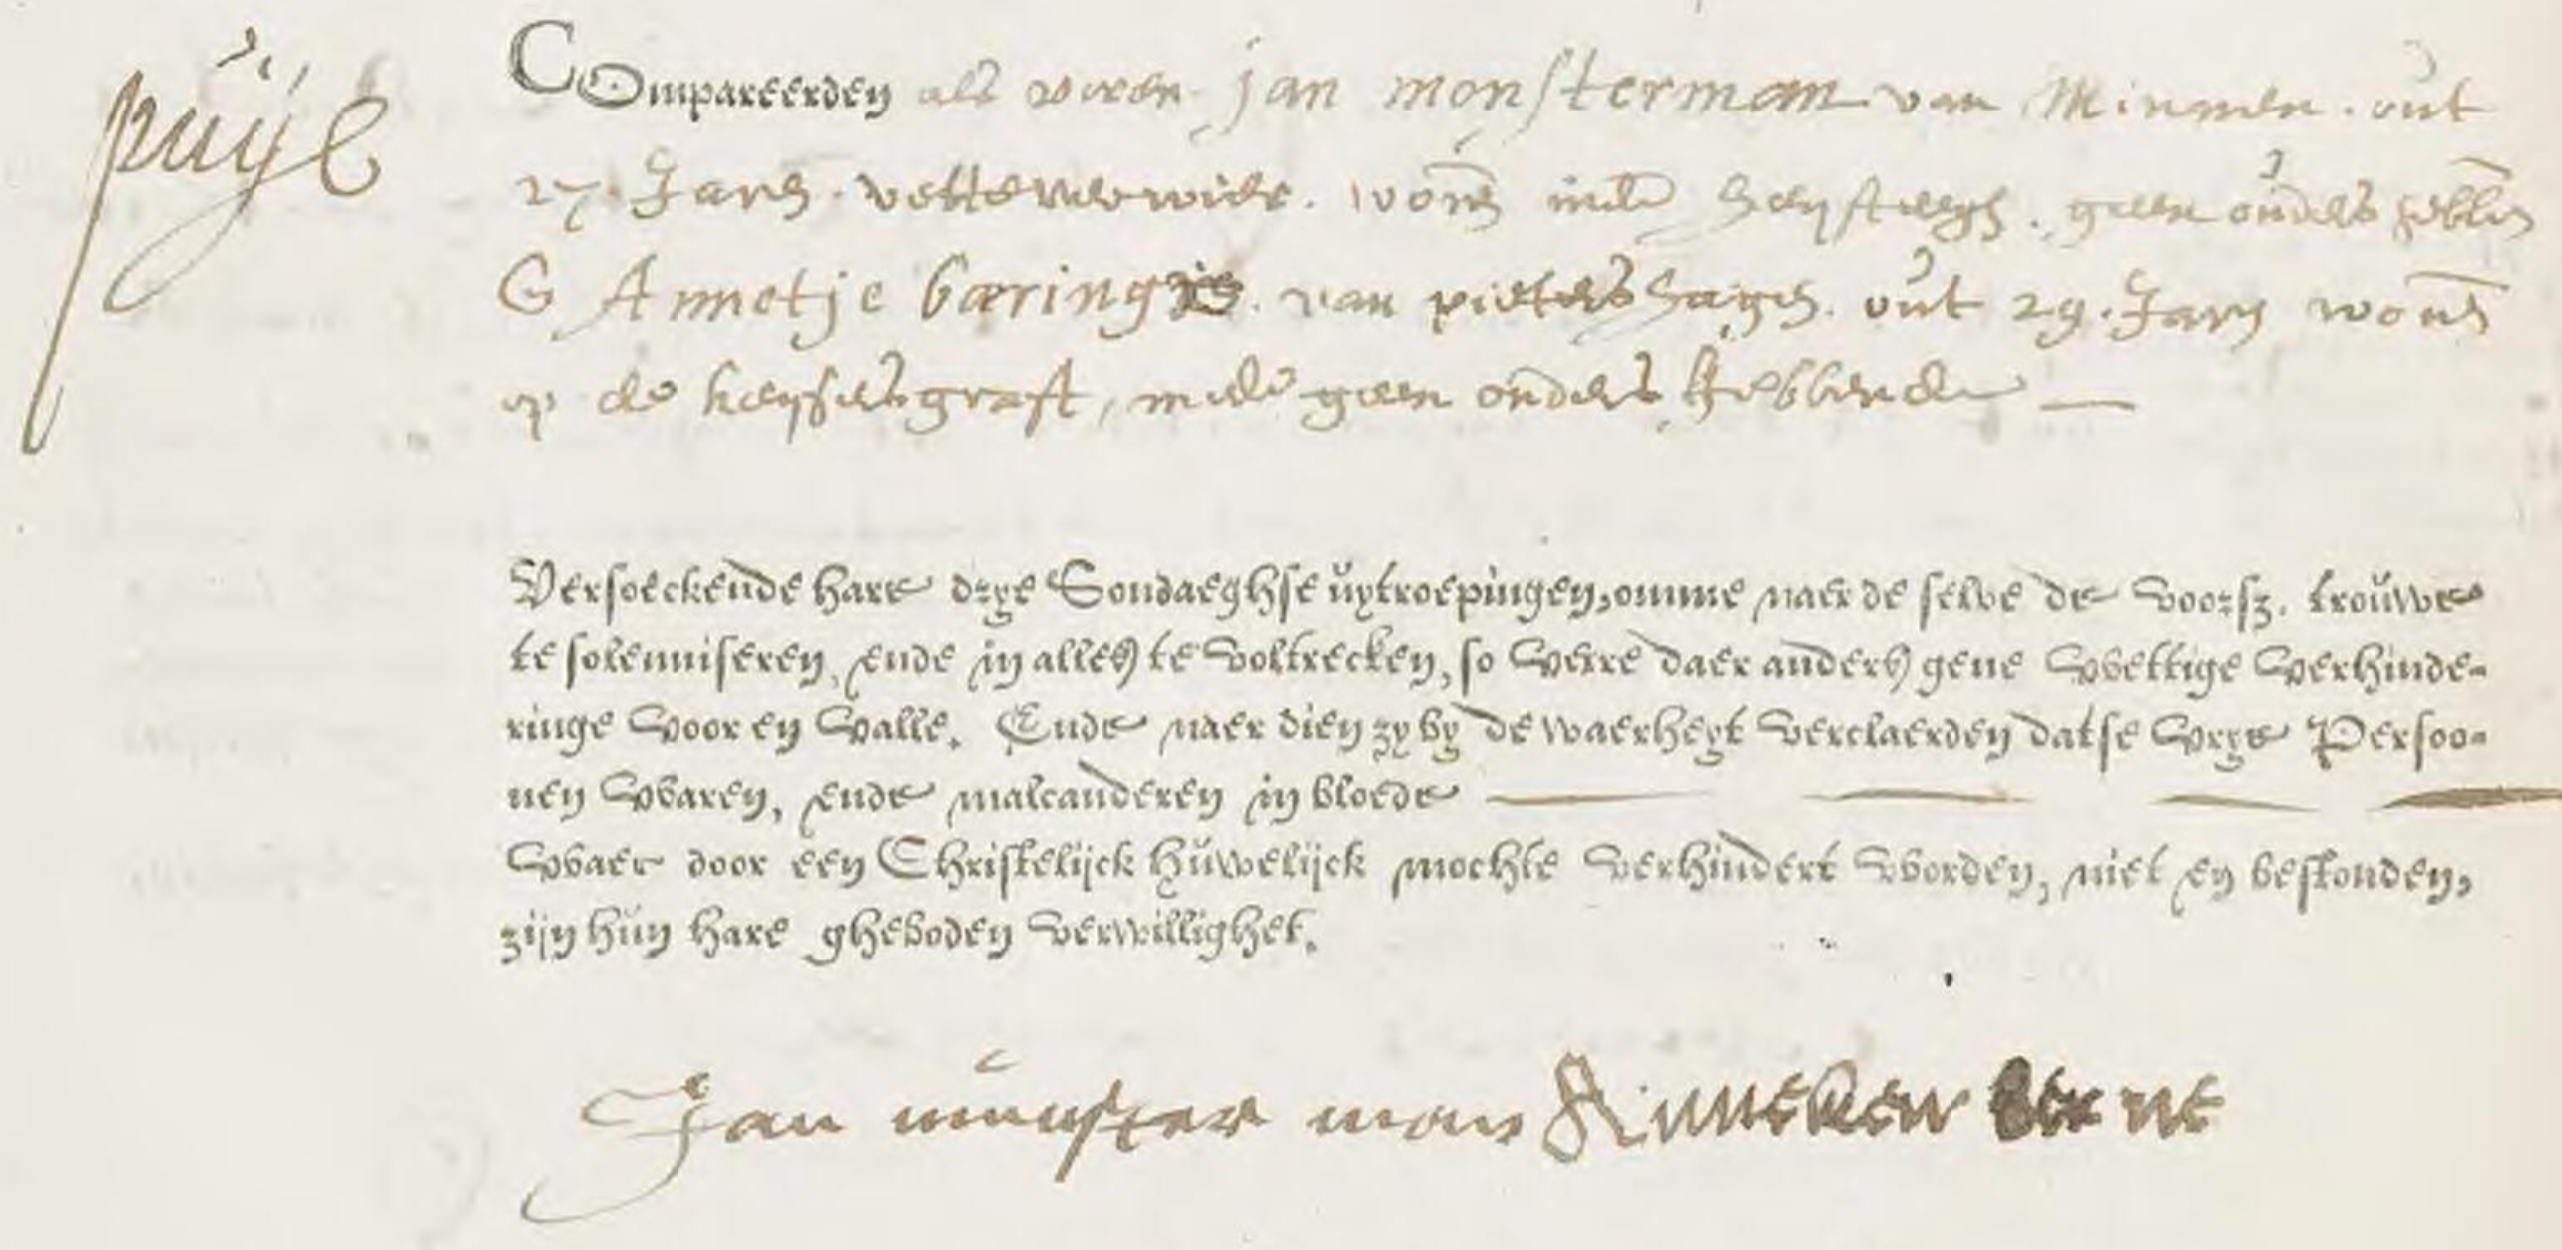 puije
Compareerden als vooren jan monsterman van Minnen . out
27. Jaren . vettewerwider . wonende inde heijsteegh . geen ouders hebben
& Annetje bæring van pietershagen . out 29. Jaren wonende
op de keijsersgraft, mede geen ouders hebbende —
Versoeckende hare drye Sondaeghse uytroepingen, omme naer de selve de voorsz. trouwe
te solemniseren, ende in alles te voltrecken, so verre daer anders gene wettige verhinde-
ringe voor en valle. Ende naer dien zy by de waerheyt verclaerden datse vrye Persoo-
nen waren, ende malcanderen in bloede
waer door een Christelijck huwelijck mochte verhindert worden, niet en bestonden,
zijn hun hare gheboden verwillighet.
Jan munster man Anneken